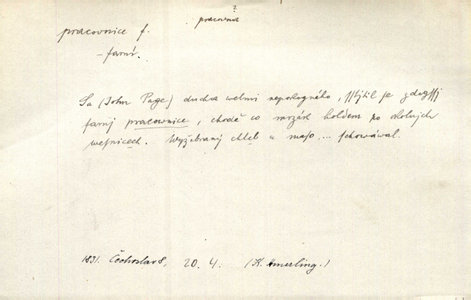 ?
pracovna
pracovnice f.
- farní.
Sa (John Page) ducha welmi nepokogného,
farnj pracownice, chodě co koldem po okolnjch
wesnicech. Wyžebraný chléb a maso ... schowáwal.
1831. Čechoslav 8, 20. 4. (K. Amerling.)